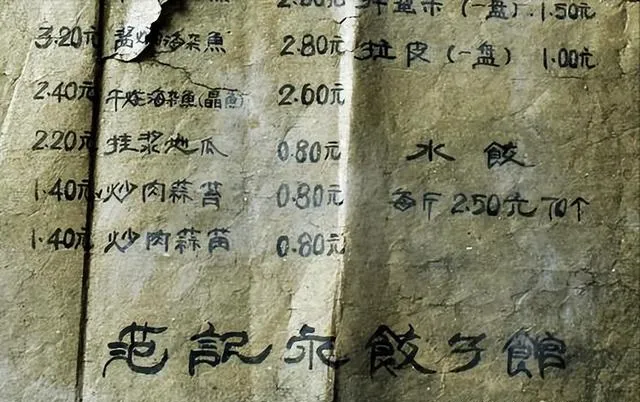 (一盘).1.50元
3.20元 海杂魚 2.80元 拉皮(一盘) 1.00元
2.40元 干烧海杂魚(晶魚) 2.60元
2.20元 挂浆地瓜 0.80元 水餃
1.40元 炒肉蒜苔 0.80元 每斤2.50元70个
1.40元 炒肉蒜苗 0.80元
范記永餃子館